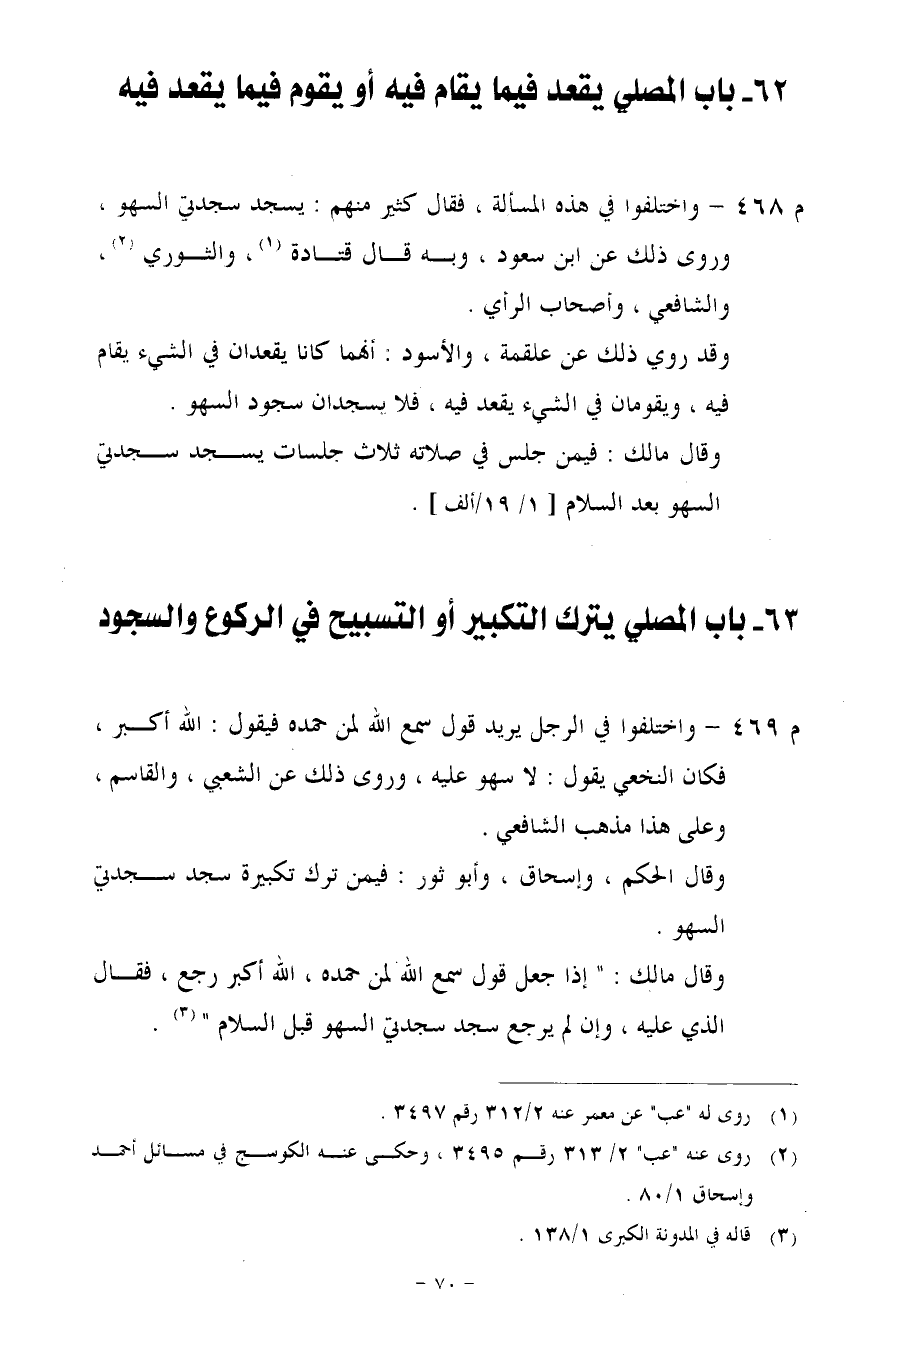 ٦٢ـ باب المصلي يقعد فيما يقام فيه أو يقوم فيما يقعد فيه
م ٤٦٨ – واختلفوا في هذه المسألة ، فقال كثير منهم : يسجد سجدتي السهو ،
وروى ذلك عن ابن سعود ، وبه قال قتادة (١) ، والثوري (٢) ،
والشافعي ، وأصحاب الرأي .
وقد روي ذلك عن علقمة ، والأسود : أنهما كانا يقعدان في الشيء يقام
فيه ، ويقومان في الشيء يقعد فيه ، فلا يسجدان سجود السهو .
وقال مالك : فيمن جلس في صلاته ثلاث جلسات يسجد سجدتي
السهو بعد السلام [ ١/ ١٩/ألف ] .
٦٣ـ باب المصلي يترك التكبير أو التسبيح في الركوع والسجود
م ٤٦٩ – واختلفوا في الرجل يريد قول سمع الله لمن حمده فيقول : الله أكبر ،
فكان النخعي يقول : لا سهو عليه ، وروى ذلك عن الشعبي ، والقاسم ،
وعلى هذا مذهب الشافعي .
وقال الحكم ، وإسحاق ، وأبو ثور : فيمن ترك تكبيرة سجد سجدتي
السهو .
وقال مالك : " إذا جعل قول سمع الله لمن حمده ، الله أكبر رجع ، فقال
الذي عليه ، وإن لم يرجع سجد سجدتي السهو قبل السلام " (٣) .
(١) روى له "عب" عن معمر عنه ٣١٢/٢ رقم ٣٤٩٧ .
(٢) روى عنه "عب" ٢/ ٣١٣ رقم ٣٤٩٥ ، وحكى عنه الكوسج في مسائل أحمد
وإسحاق ٨٠/١ .
(٣) قاله في المدونة الكبرى ١٣٨/١ .
– ٧٠ –